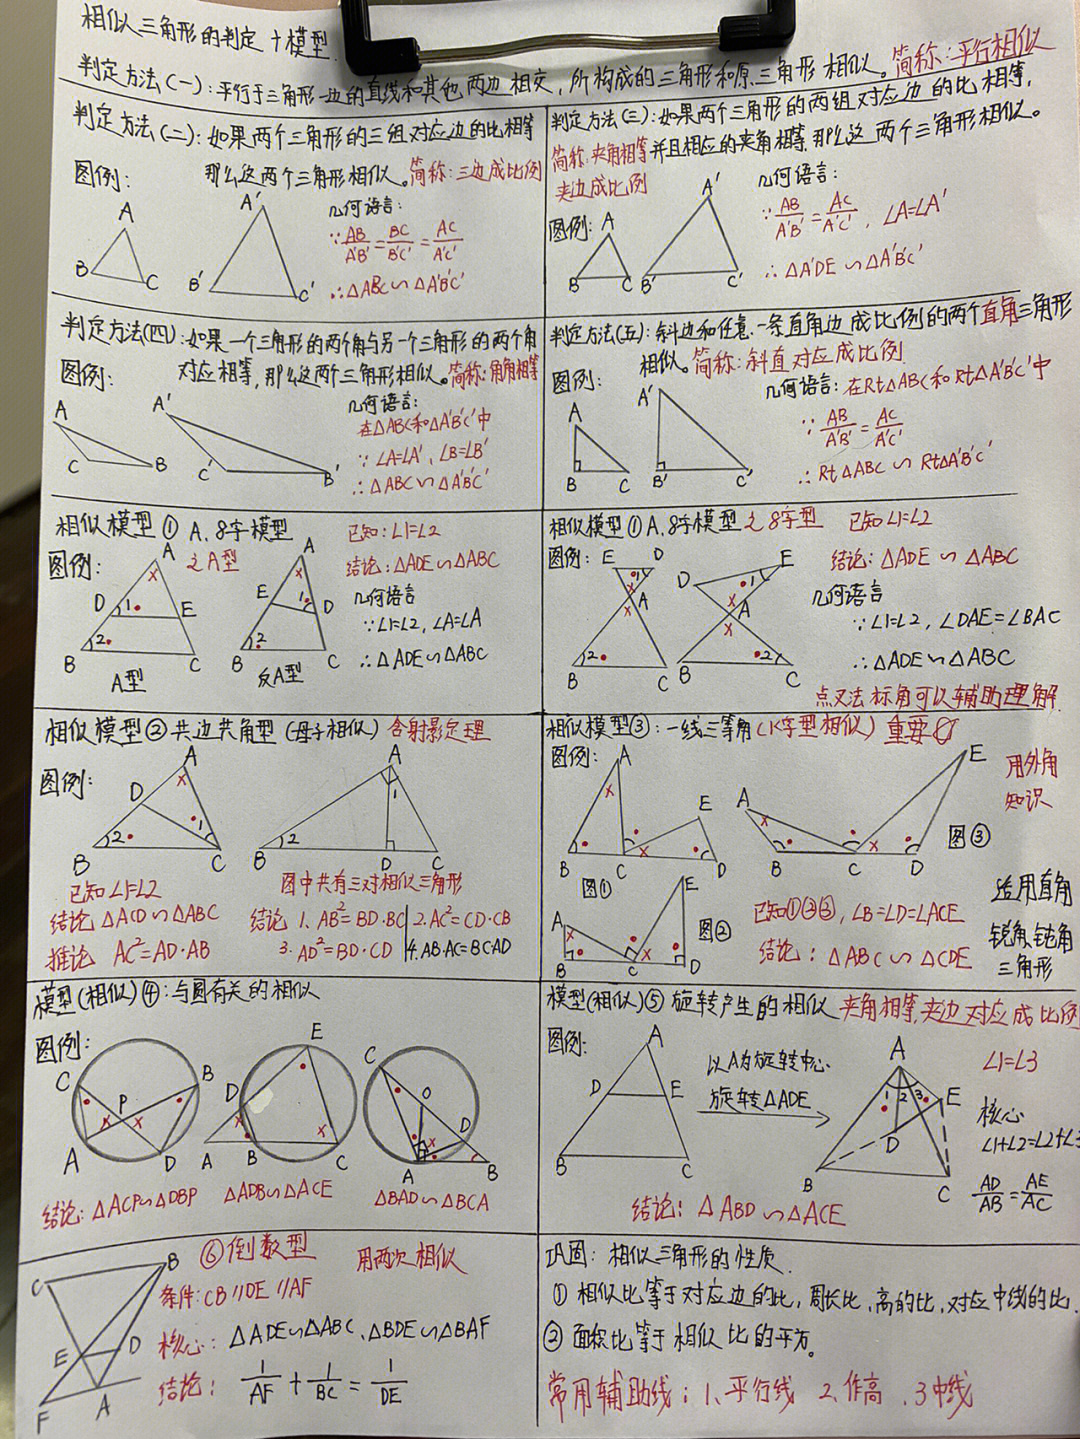 相似三角形的判定+模型.
判定方法(一):平行于三角形一边的直线和其他两边相交,所构成的三角形和原三角形相似。简称:平行相似
判定方法(二):如果两个三角形的三组对应边的比相等
那么这两个三角形相似。简称:三边成比例
图例:
几何语言:
∵AB/A'B'=BC/B'C'=AC/A'C'
∴△ABC∽△A'B'C'
A
B
C
A'
B'
C'
判定方法(三):如果两个三角形的两组对应边的比相等,
简称:夹角相等并且相应的夹角相等,那么这两个三角形相似。
夹边成比例
图例:
几何语言:
∵AB/A'B'=AC/A'C',∠A=∠A'
∴△A'DE∽△A'B'C'
A
B
C
A'
B'
C'
判定方法(四):如果一个三角形的两个角与另一个三角形的两个角
对应相等,那么这两个三角形相似。简称:角角相等
图例:
几何语言:
在△ABC和△A'B'C'中
∵∠A=∠A',∠B=∠B'
∴△ABC∽△A'B'C'
A
C
B
A'
C'
B'
判定方法(五):斜边和任意一条直角边成比例的两个直角三角形
相似。简称:斜直对应成比例
图例:
几何语言:在Rt△ABC和Rt△A'B'C'中
∵AB/A'B'=AC/A'C'
∴Rt△ABC∽Rt△A'B'C'
A
B
C
A'
B'
C'
相似模型①A,8字模型
之A型
图例:
已知:∠1=∠2
结论:△ADE∽△ABC
几何语言
∵∠1=∠2,∠A=∠A
∴△ADE∽△ABC
A
D
1
E
2
B
C
A型
A
E
1
D
2
B
C
反A型
相似模型①A,8字模型之8字型
已知∠1=∠2
图例:
结论:△ADE∽△ABC
几何语言
∵∠1=∠2,∠DAE=∠BAC
∴△ADE∽△ABC
点叉法标角可以辅助理解
E
D
1
A
2
B
C
D
E
1
A
2
B
C
相似模型②共边共角型(母子相似)含射影定理
图例:
A
D
2
1
B
C
已知∠1=∠2
结论△ACD∽△ABC
推论 AC²=AD·AB
A
1
2
B
D
C
图中共有三对相似三角形
结论 1.AB²=BD·BC 2.AC²=CD·CB
3.AD²=BD·CD 4.AB·AC=BC·AD
相似模型③:一线三等角(K字型相似)重要
图例:
用外角
知识
A
E
B
C
D
图①
A
E
B
C
D
图③
A
E
B
C
D
图②
已知①②③,∠B=∠D=∠ACE
结论:△ABC∽△CDE
适用直角
锐角,钝角
三角形
模型(相似)④:与圆有关的相似
图例:
C
B
P
A
D
E
D
A
B
C
C
O
D
A
B
结论:△ACP∽△DBP
△ADB∽△ACE
△BAD∽△BCA
模型(相似)⑤旋转产生的相似 夹角相等,夹边对应成比例
图例:
A
D
E
B
C
以A为旋转中心
旋转△ADE
A
1
2
3
E
D
B
C
∠1=∠3
核心
∠1+∠2=∠2+∠3
AD/AB=AE/AC
结论:△ABD∽△ACE
⑥倒数型 用两次相似
条件:CB∥DE∥AF
核心:△ADE∽△ABC,△BDE∽△BAF
结论:1/AF+1/BC=1/DE
C
B
E
D
F
A
巩固:相似三角形的性质.
①相似比等于对应边的比,周长比,高的比,对应中线的比.
②面积比等于相似比的平方。
常用辅助线:1、平行线 2.作高 .3中线